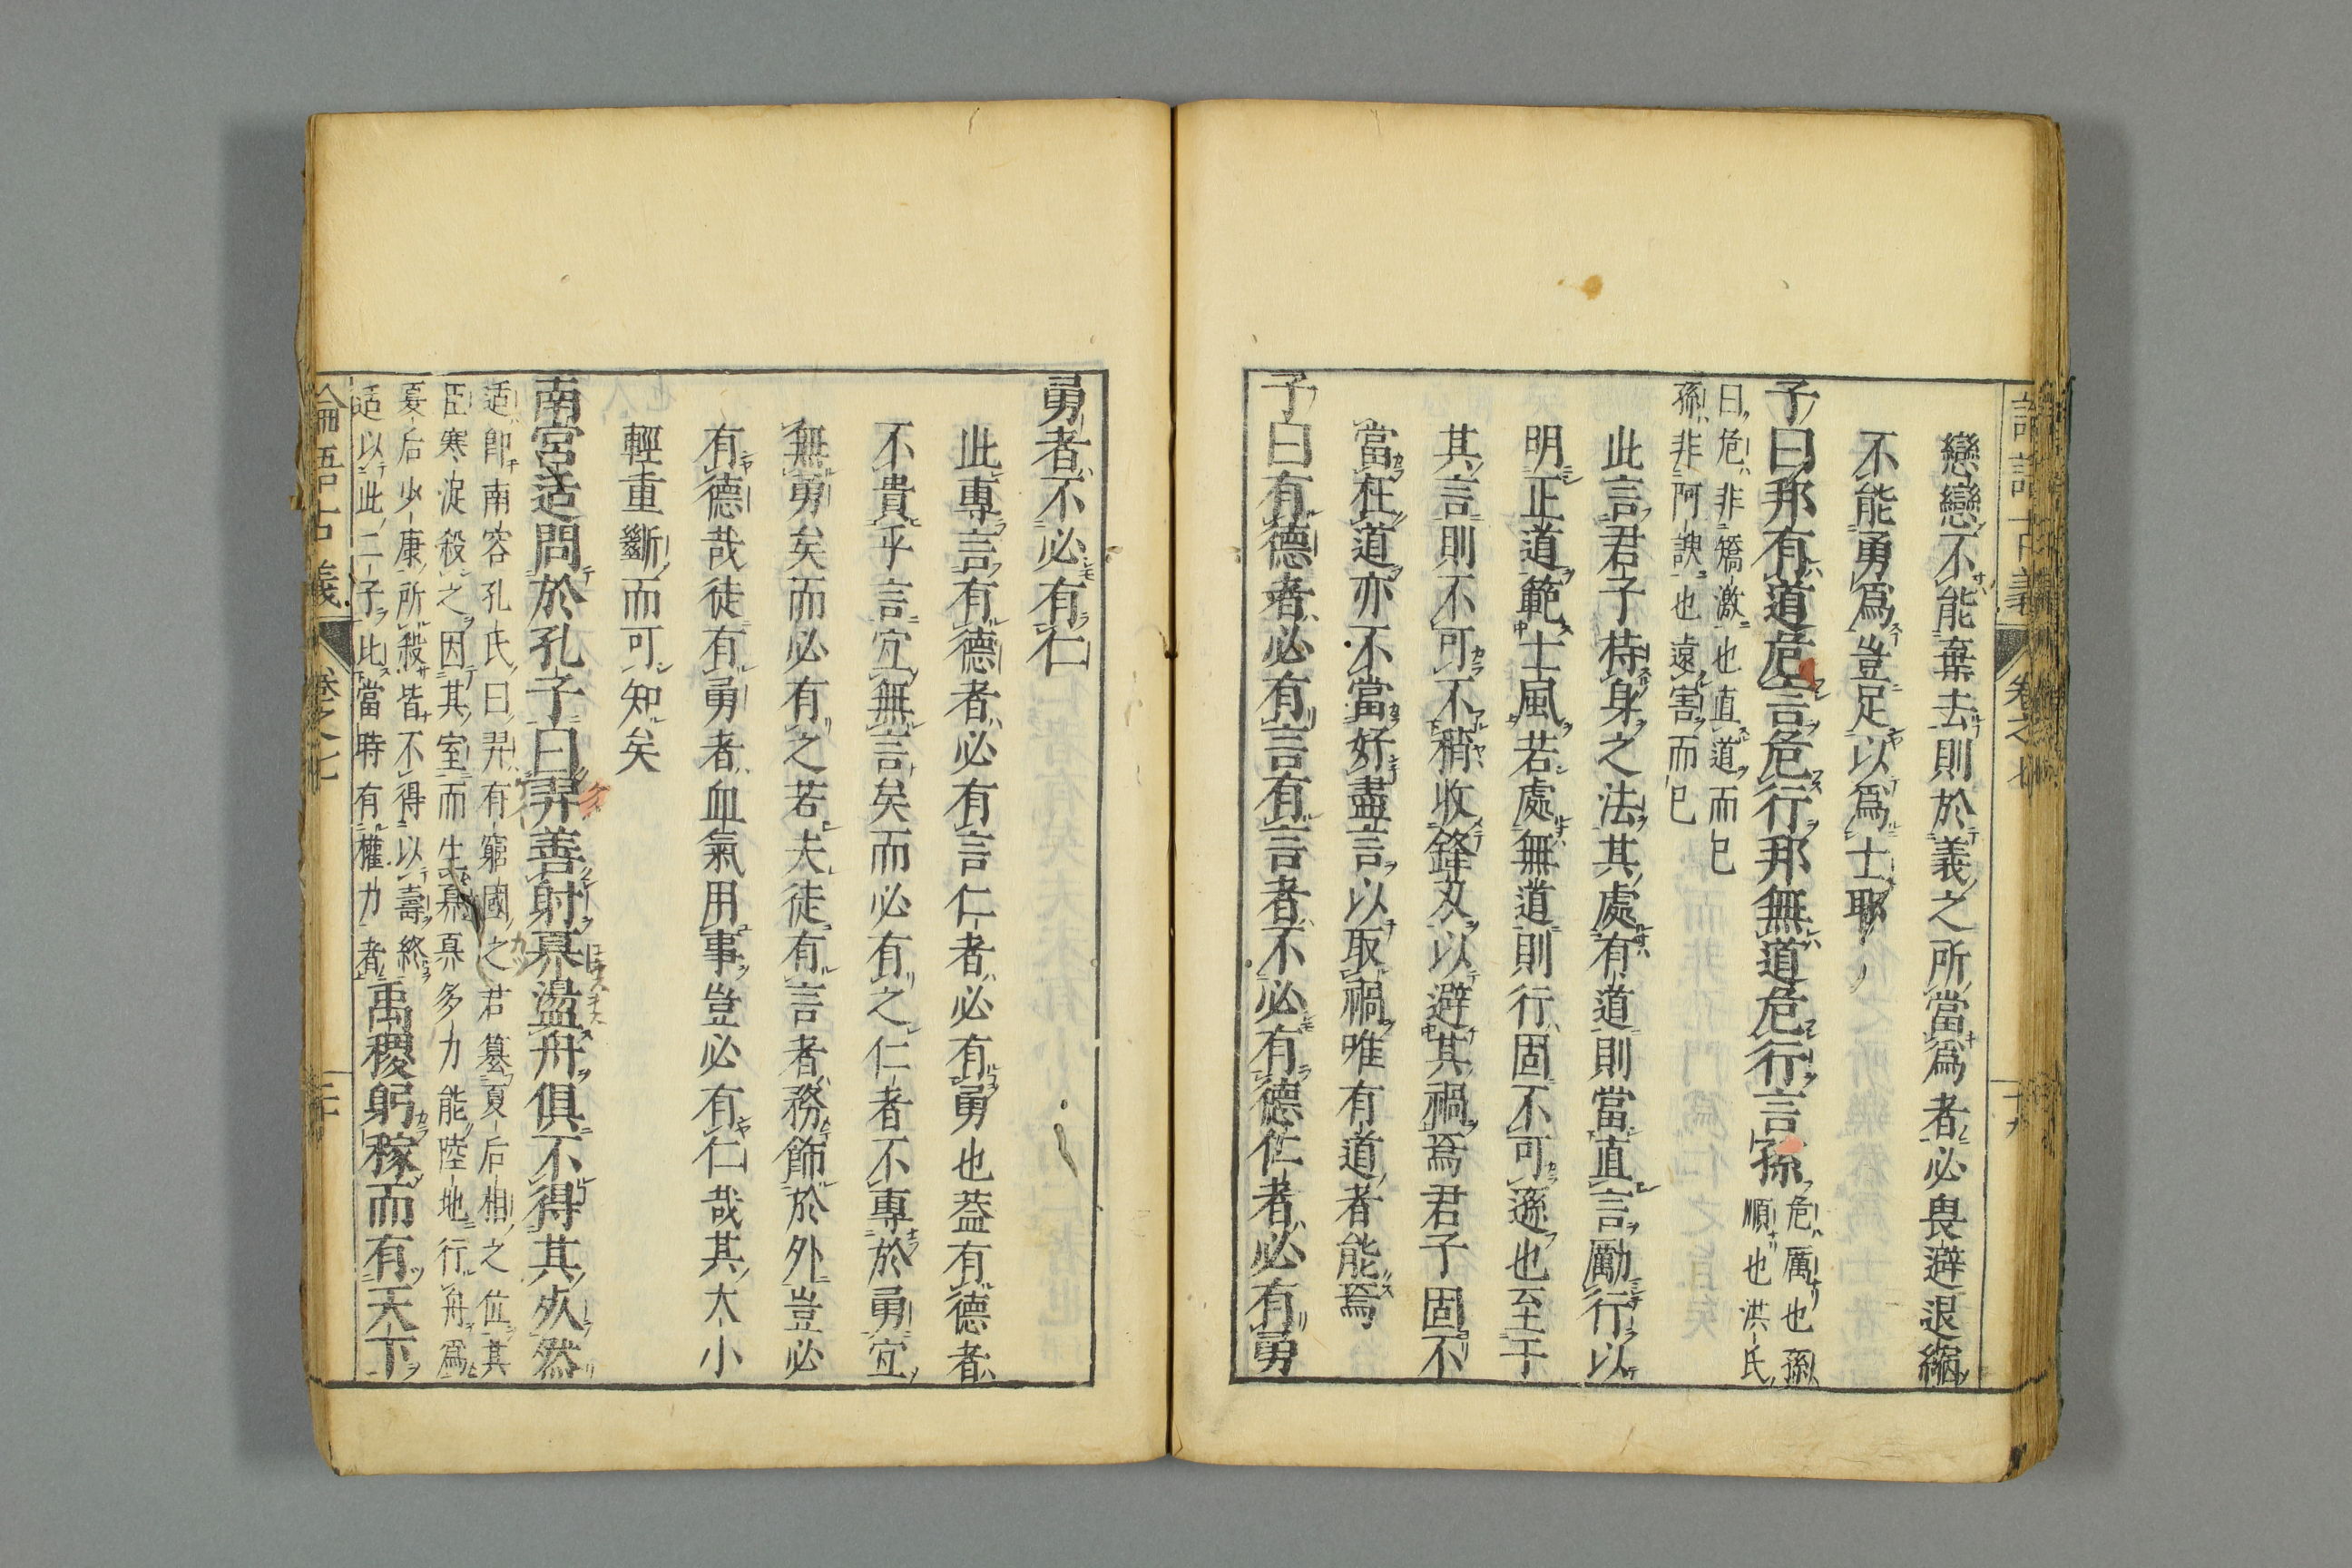 戀戀不能棄去則於義之所當爲者必畏避退縮
不能勇爲豈足以爲士耶
子曰邦有道危言危行邦無道危行言孫
危厲也孫
順也洪氏
曰危非矯激也直道而已
孫非阿諛也遠害而已
此言君子持身之法其處有道則當直言勵行以
明正道範士風若處無道則行固不可遜也至于
其言則不可不稍收鋒及以避其禍焉君子固不
當枉道亦不當好盡言以取禍唯有道者能焉
子曰有德者必有言有言者不必有德仁者必有勇
勇者不必有仁
此專言有德者必有言仁者必有勇也蓋有德者
不貴乎言宜無言矣而必有之仁者不專於勇宜
無勇矣而必有之若夫徒有言者務飾於外豈必
有德哉徒有勇者血氣用事豈必有仁哉其大小
輕重斷而可知矣
南宮适問於孔子曰羿善射奡盪舟俱不得其死然
适卽南容孔氏曰羿有窮國之君簒夏后相之位其
臣寒浞殺之因其室而生奡奡多力能陸地行舟爲
夏后少康所殺皆不得以壽終
禹稷躬稼而有天下
适以此二子比當時有權力者
論語古義
卷之七
二十